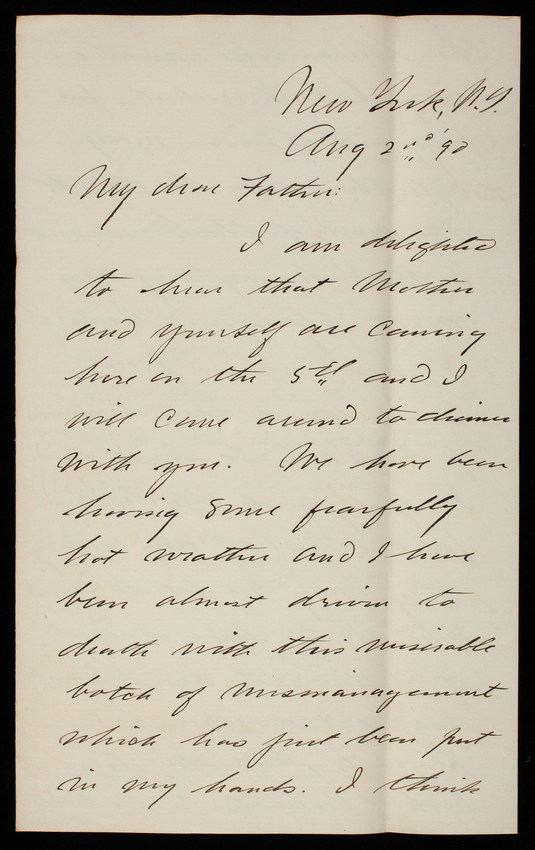 New York, N.Y.
Aug 2nd '90
My dear Father:
I am delighted
to hear that Mother
and yourself are coming
here on the 5th and I
will come around to dinner
with you. We have been
having some fearfully
hot weather and I have
been almost driven to
death with this miserable
botch of mismanagement
which has just been put
in my hands. I think